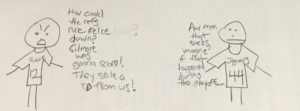 How could
the refs
rule Reice
down?
Gilmore
was
gonna score!
They stole a
TD from us!
12
Aw man
that
sucks
worse
if that
happened
during
the playoffs
Jones
44